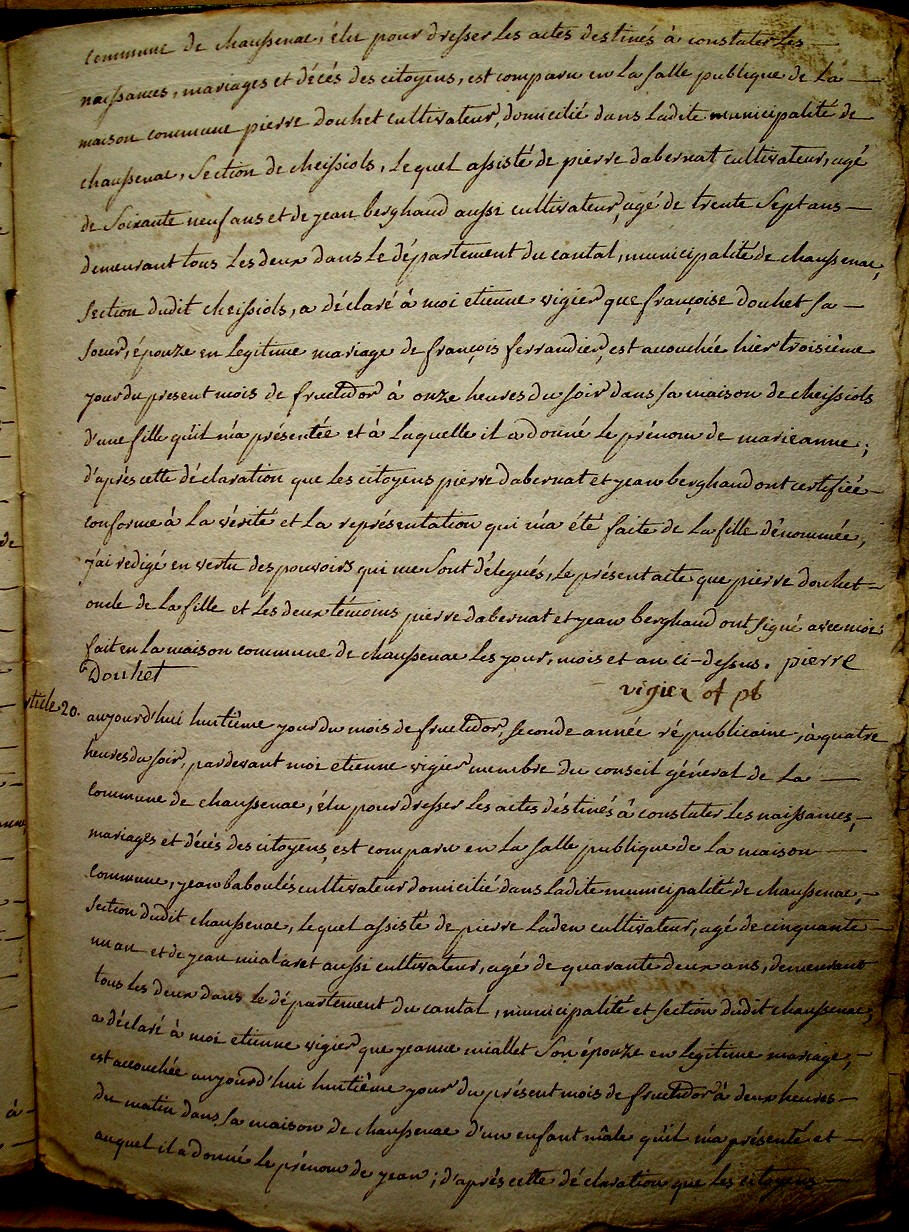 commune de chaussenac, élu pour dresser les actes destinés à constater les
naissances, mariages et décés des citoyens, est comparu en la salle publique de la
maison commune pierre douhet cultivateur, domicilié dans ladite municipalité de
chaussenac, Section de cheissiols, lequel assisté de pierre dabernat cultivateur, agé
de soixante neuf ans et de jean berghaud aussi cultivateur, agé de trente sept ans
demeurant tous les deux dans le département du cantal, municipalité de chaussenac,
section dudit cheissiols, a déclaré à moi etienne vigier que françoise douhet sa
soeur, épouze en legitime mariage de françois ferrandier, est accouchée hier troisième
jour du present mois de fructidor à onze heures du soir dans sa maison de cheissiols
d'une fille qu'il m'a présentée et à laquelle il a donné le prénom de marieanne ;
d'après cette déclaration que les citoyens pierre dabernat et jean berghaud ont certifiée
conforme à la vérité et la représentation qui m'a été faite de la fille dénommée,
j'ai redigé en vertu des pouvoirs qui me sont délegués, le présent acte que pierre douhet
oncle de la fille et les deux témoins pierre dabernat et jean berghaud ont signé avec moi
fait en la maison commune de chaussenac les jour, mois et an ci-dessus. pierre
Douhet
vigier of pb
rticle 20.
aujourd'hui huitième jour du mois de fructidor, seconde année républicaine, à quatre
heures du soir, pardevant moi etienne vigier membre du conseil général de la
commune de chaussenac, élu pour dresser les actes déstinés à constater les naissances,
mariages et décés des citoyens, est comparu en la salle publique de la maison
commune, jean baboulés cultivateur domicilié dans ladite municipalité de chaussenac,
section dudit chaussenac, lequel assisté de pierre laden cultivateur, agé de cinquante
un an et de jean mialaret aussi cultivateur, agé de quarante deux ans, demeurant
tous les deux dans le département du cantal, municipalité et section dudit chaussenac,
a déclaré à moi etienne vigier que jeanne miallet son épouze en legitime mariage,
est accouchée aujourd'hui huitième jour du présent mois de fructidor à deux heures
du matin dans sa maison de chaussenac d'un enfant mâle qu'il m'a présenté et
auquel il a donné le prénom de jean ; d'après cette déclaration que les citoyens